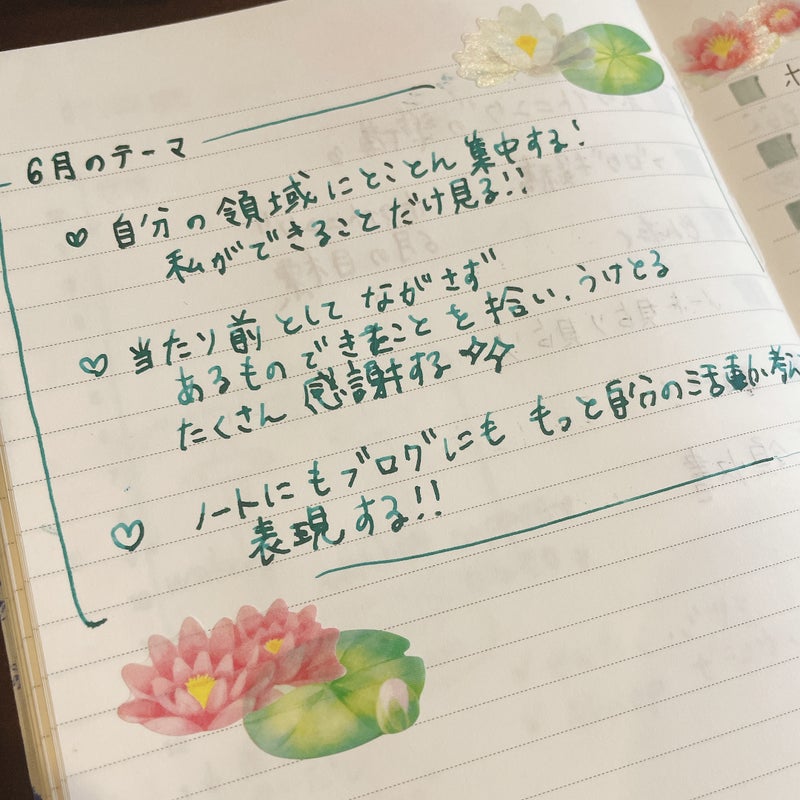 6月のテーマ
♡ 自分の領域にとことん集中する!
私ができることだけ見る!!
♡ 当たり前としてながさず
あるものできたことを拾い、うけとる
たくさん感謝する☆☆
♡ ノートにもブログにももっと自分の活動や考え
表現する!!